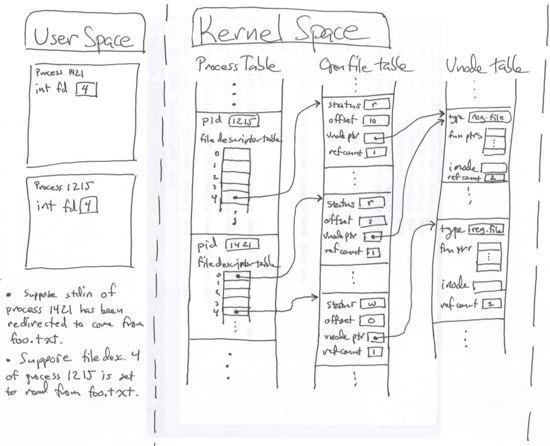 User Space
Process 1421
int fd 4
Process 1215
int fd 4
• Suppose stdin of
process 1421 has been
redirected to come from
foo.txt.
• Suppose file desc. 4
of process 1215 is set
to read from foo.txt.
Kernel Space
Process Table
pid 1215
file descriptor table
0
1
2
3
4
pid 1421
file descriptor table
0
1
2
3
4
Open file table
status r
offset 10
vnode ptr
ref count 1
status r
offset 2
vnode ptr
ref count 1
status w
offset 0
vnode ptr
ref count 1
Vnode table
type reg. file
fun ptrs
inode
ref count 2
type reg. file
fun ptrs
inode
ref count 1